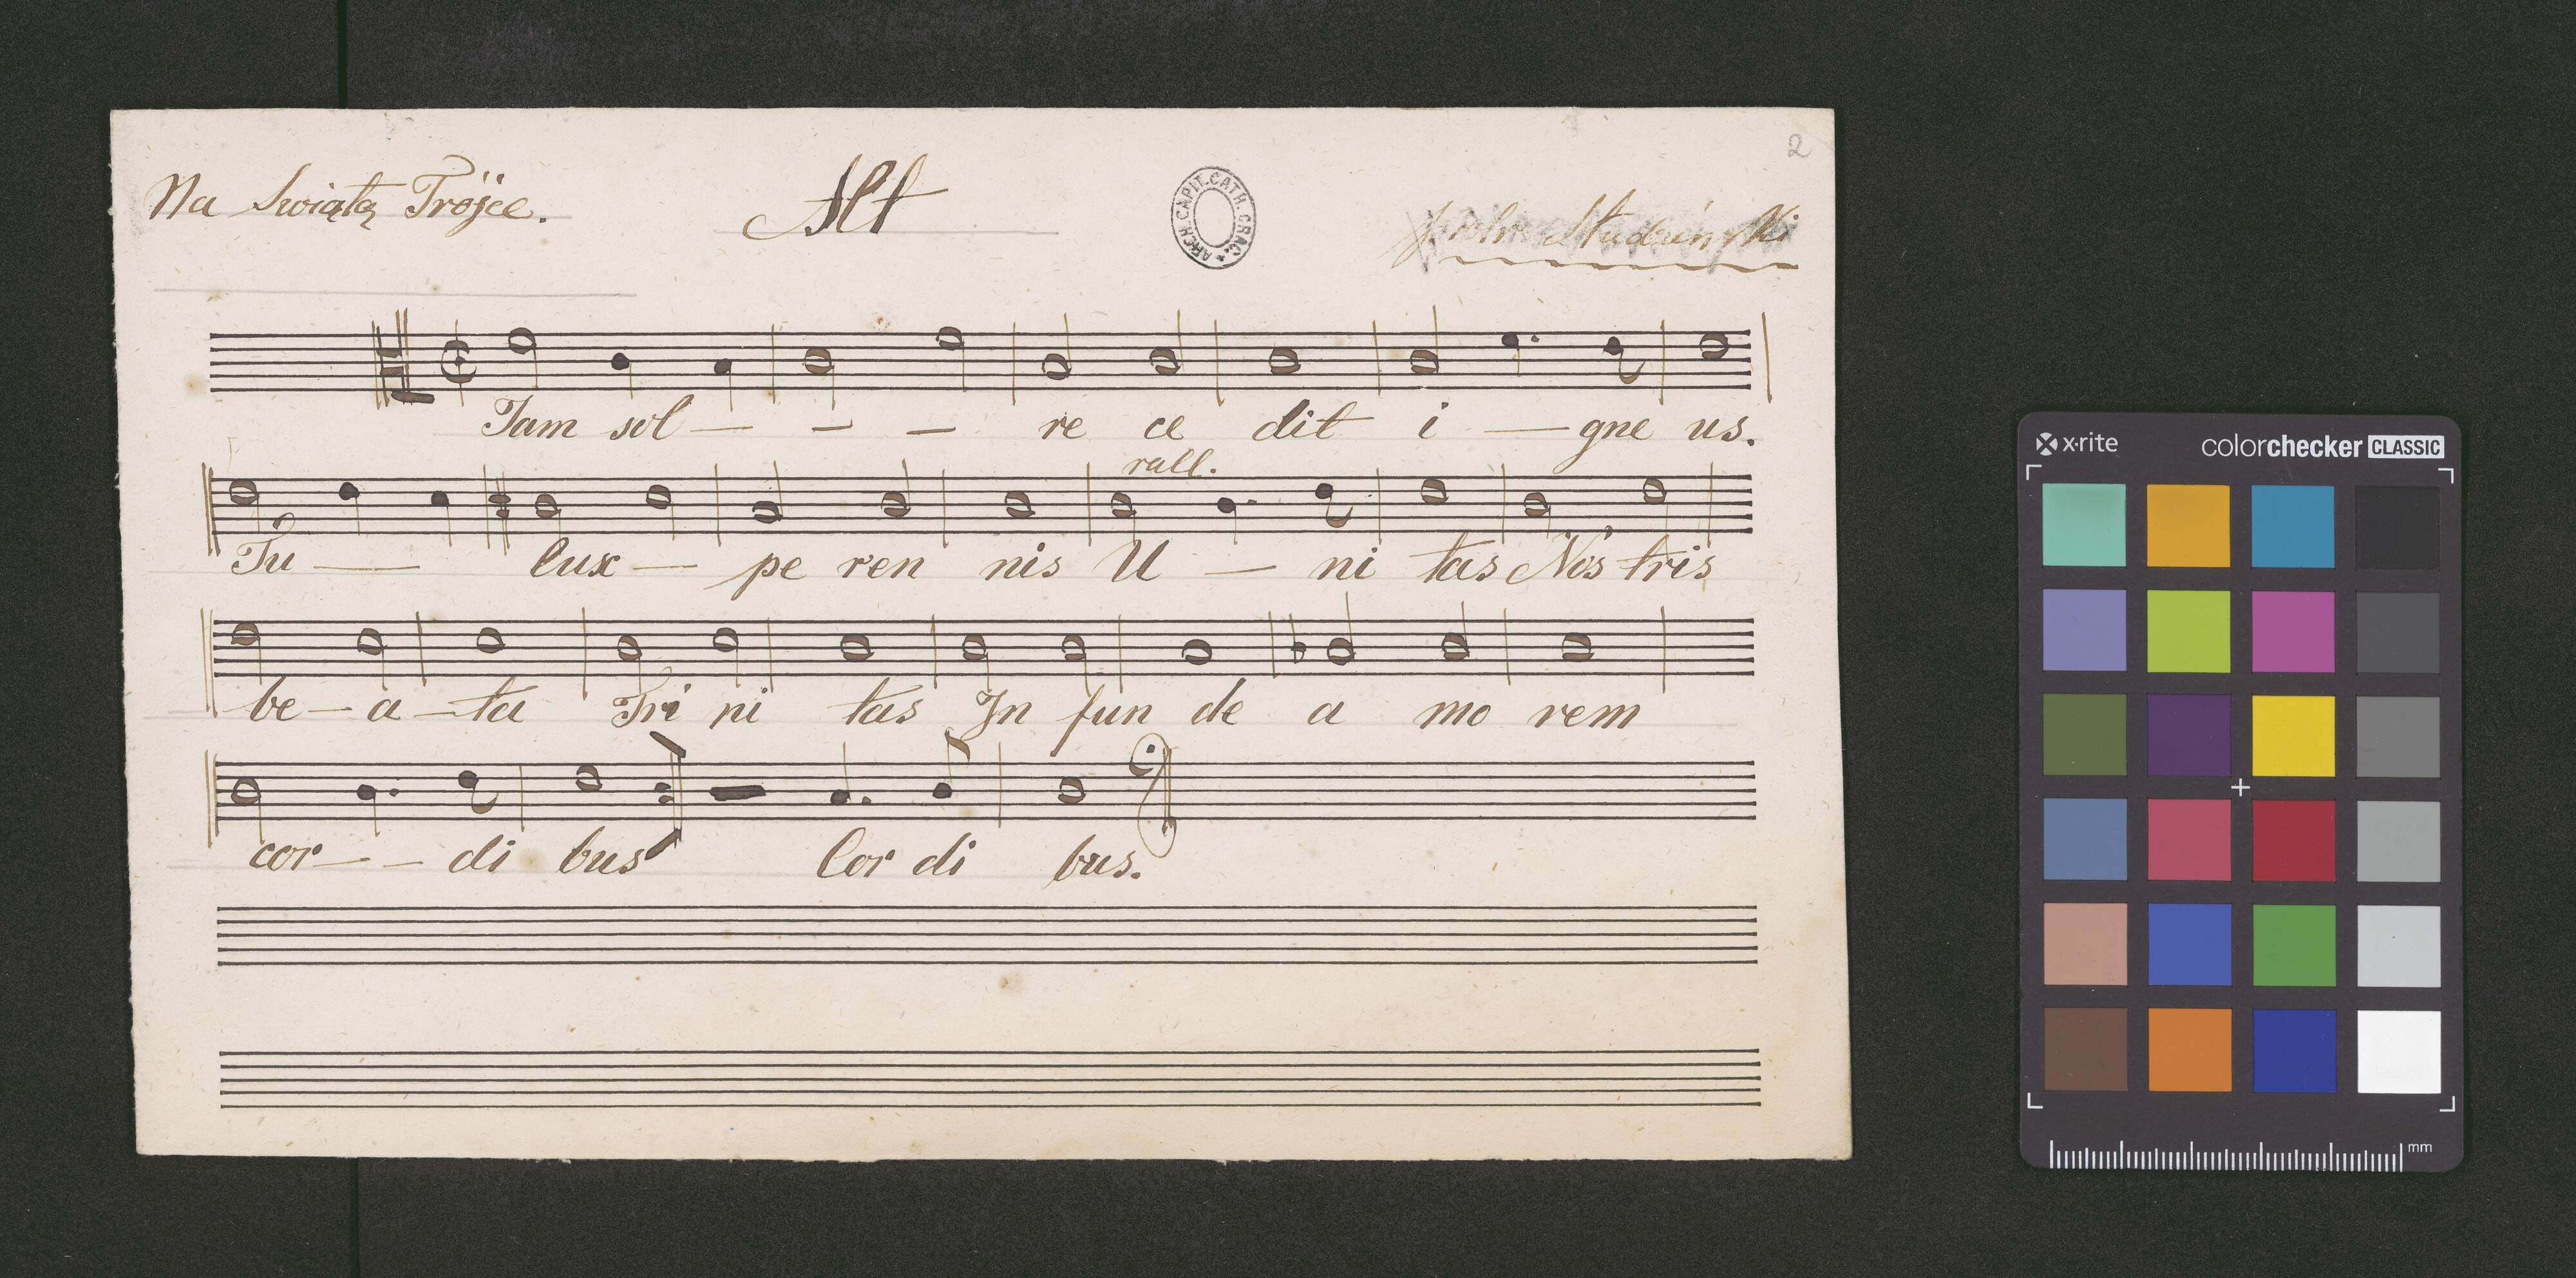 2
Na Swiątą Trójce.
Alt
ARCH. CAPIT. CATH. CRAC.
Studziński
Jam sol — — — re ce dit i — gne us.
rall.
Tu — lux — pe ren nis U — ni tas Nos tris
be — a — ta Tri ni tas In fun de a mo rem
cor — — di bus Cor di bus.
x·rite
colorchecker CLASSIC
mm